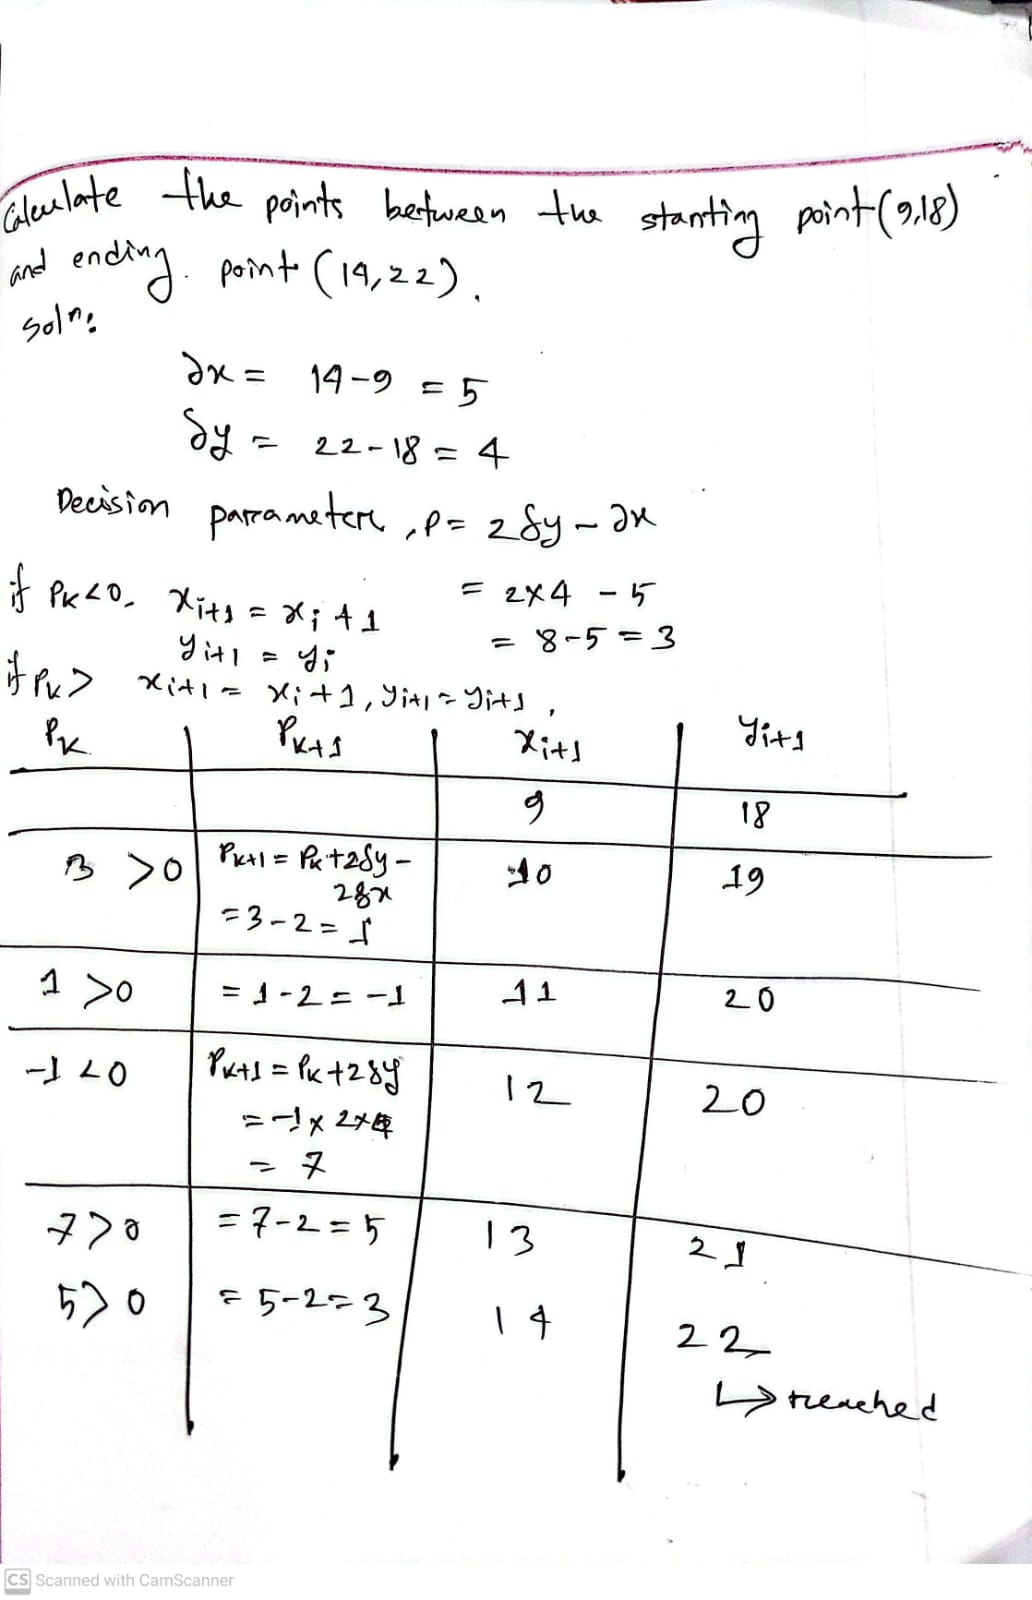 Calculate the points between the starting point (9,18)
and ending point (14,22).
Soln:
∂x = 14-9 = 5
δy = 22-18 = 4
Decision parrameter, P = 2δy - ∂x
if Pk<0, xi+1 = xi+1 = 2x4 - 5
yi+1 = yi = 8-5 = 3
if Pk> xi+1 = xi+1, yi+1 = yi+1,
Pk Pk+1 xi+1 yi+1
9 18
3 >0 Pk+1 = Pk+2δy - 10 19
2δx
=3-2=1
1 >0 = 1-2 = -1 11 20
-1 <0 Pk+1 = Pk+2δy 12 20
= -1 x 2x4
= 7
7>0 =7-2=5 13 21
5>0 = 5-2=3 14 22
↳ reached
CS Scanned with CamScanner